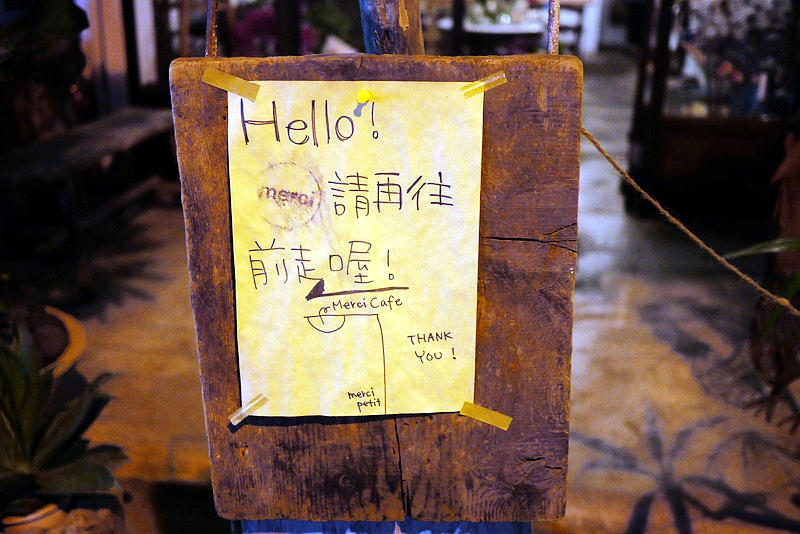 Hello!
merci 請再往
前走喔!
Merci Cafe
THANK
YOU!
merci
petit